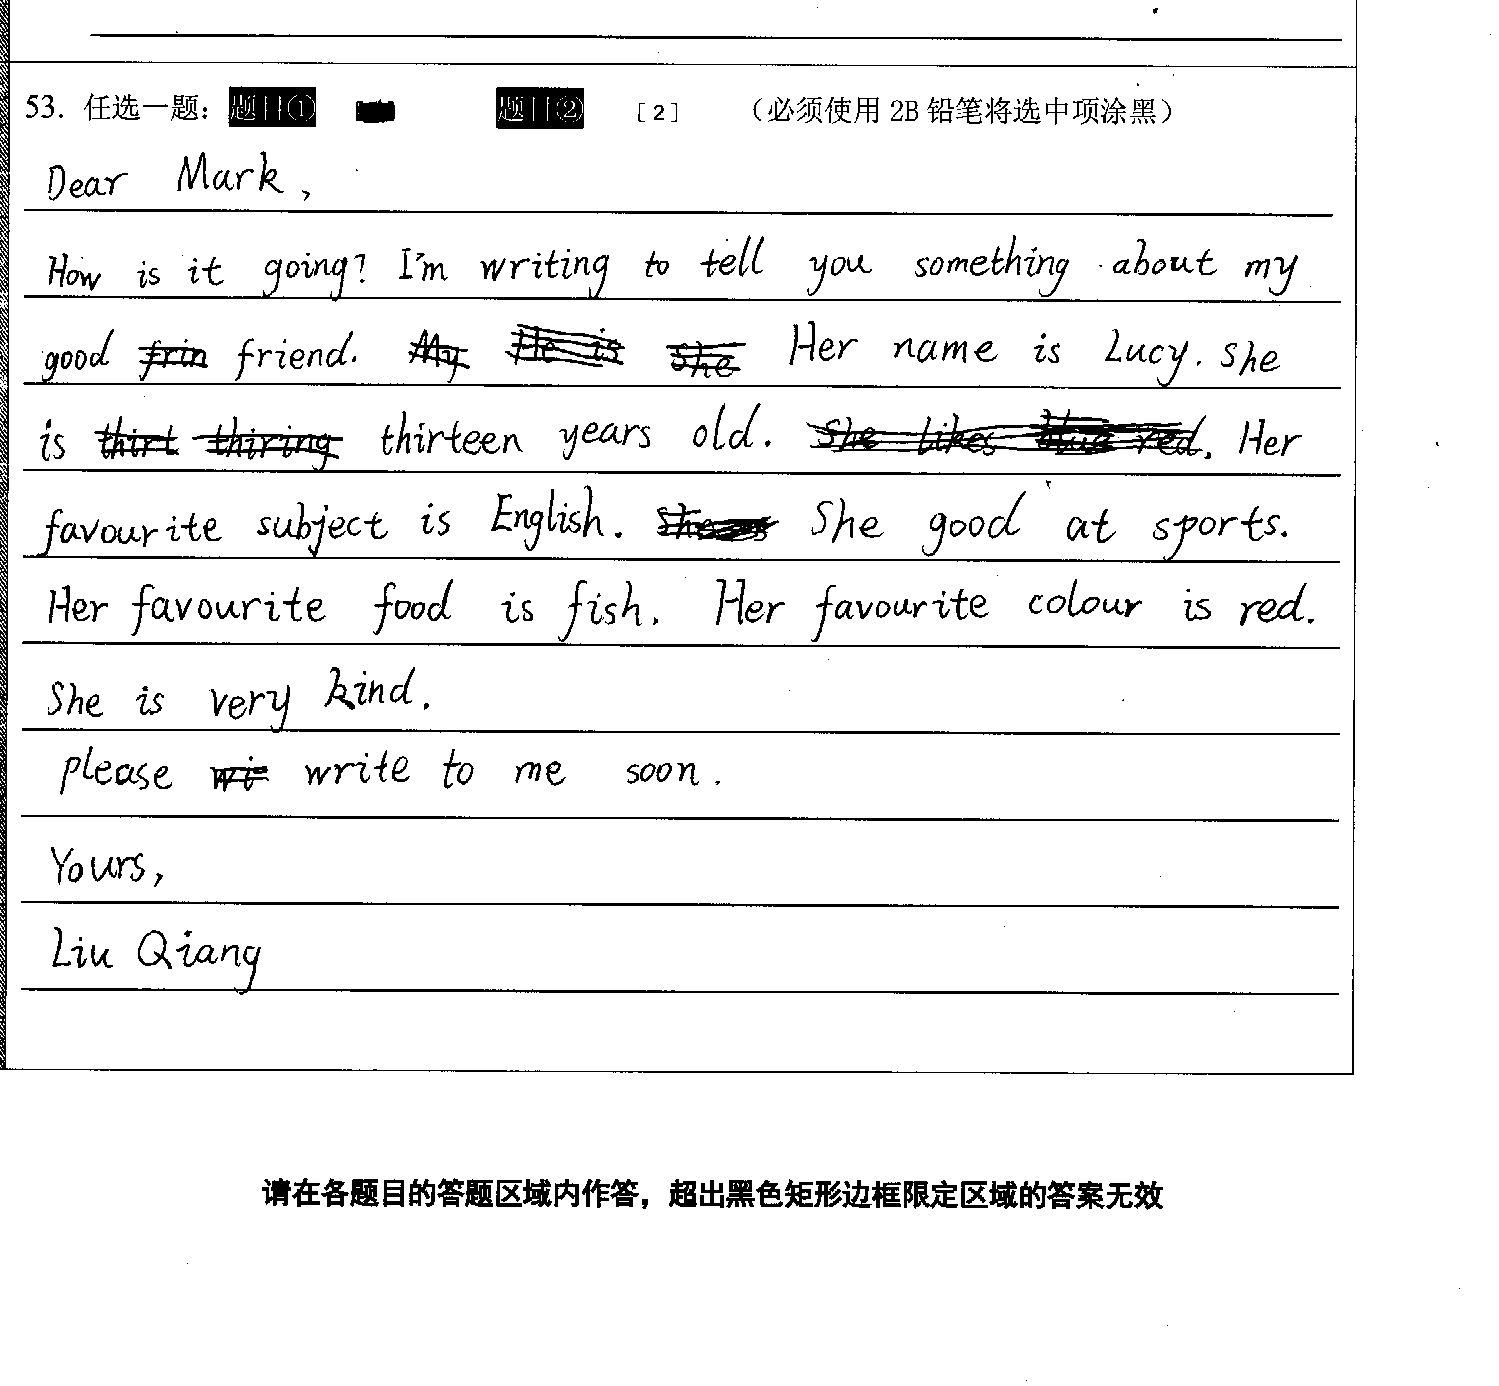 53. 任选一题： 题目① 题目② [2] （必须使用 2B 铅笔将选中项涂黑）
Dear Mark,
How is it going? I'm writing to tell you something about my
good frin friend. My He is She Her name is Lucy. She
is thirt thiring thirteen years old. She likes blue red. Her
favourite subject is English. She good at sports.
Her favourite food is fish. Her favourite colour is red.
She is very kind.
please wi write to me soon.
Yours,
Liu Qiang
请在各题目的答题区域内作答，超出黑色矩形边框限定区域的答案无效